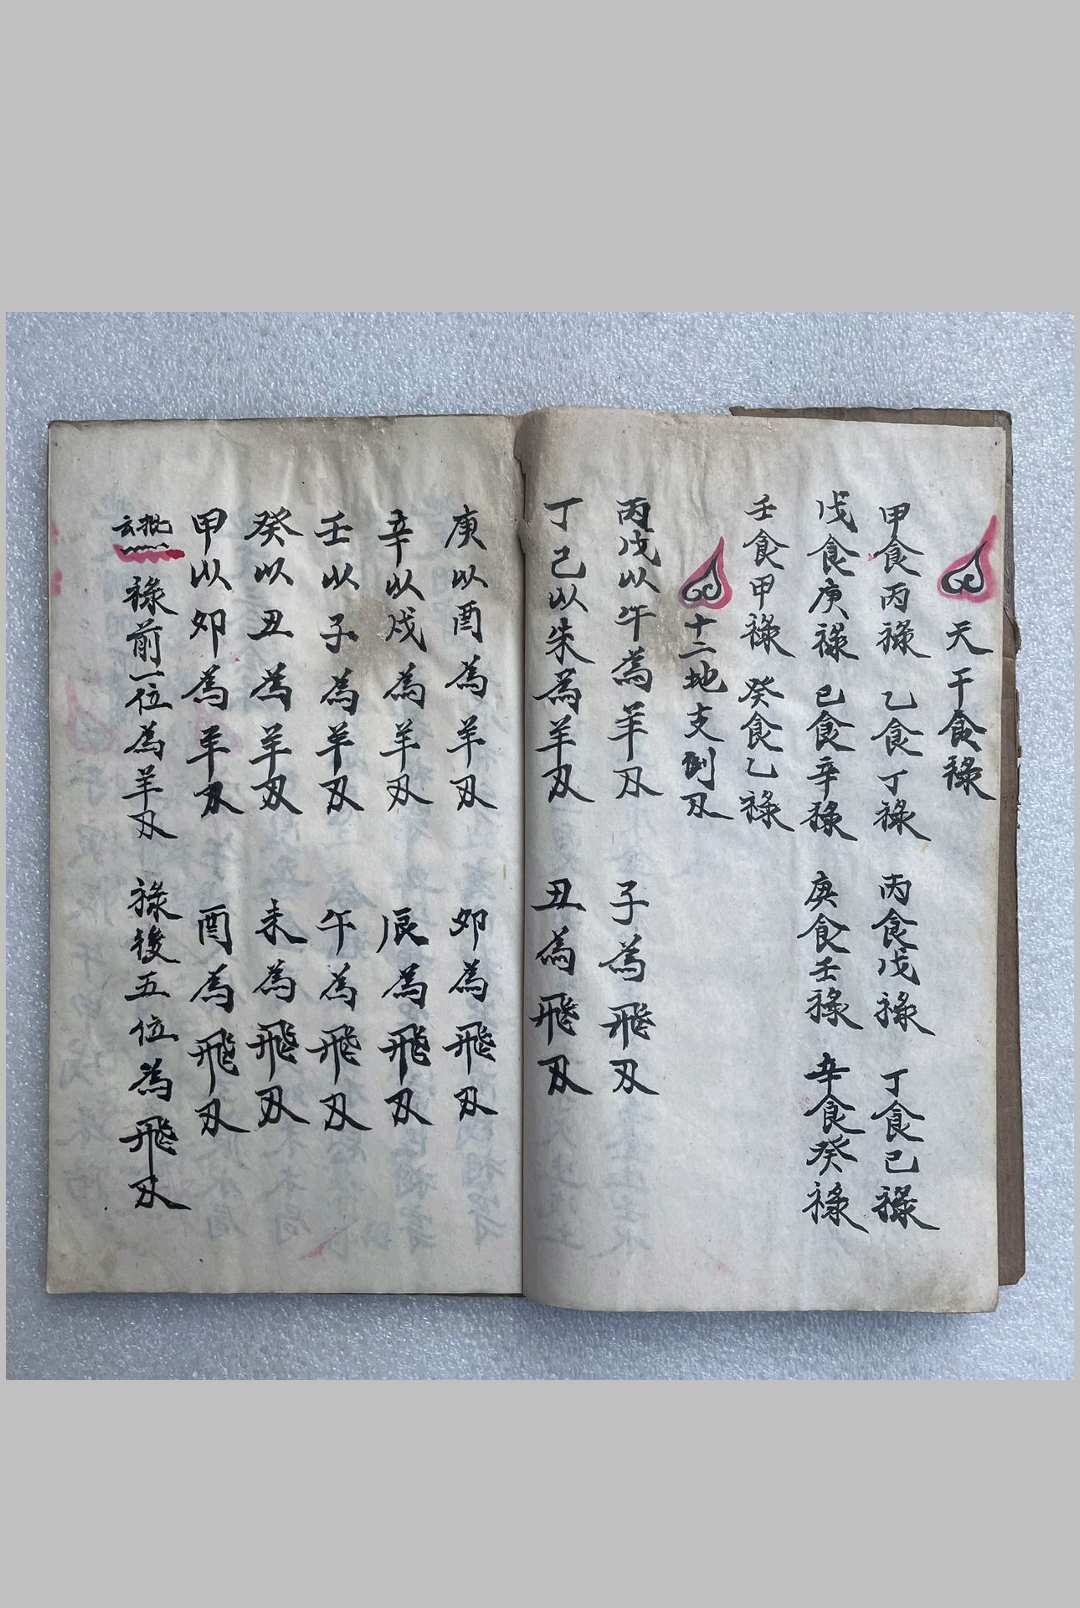 天干食祿
甲食丙祿 乙食丁祿 丙食戊祿 丁食己祿
戊食庚祿 己食辛祿 庚食壬祿 辛食癸祿
壬食甲祿 癸食乙祿
十二地支倒刃
丙戊以午為羊刃 子為飛刃
丁己以未為羊刃 丑為飛刃
庚以酉為羊刃 卯為飛刃
辛以戌為羊刃 辰為飛刃
壬以子為羊刃 午為飛刃
癸以丑為羊刃 未為飛刃
甲以卯為羊刃 酉為飛刃
批云 祿前一位為羊刃 祿後五位為飛刃